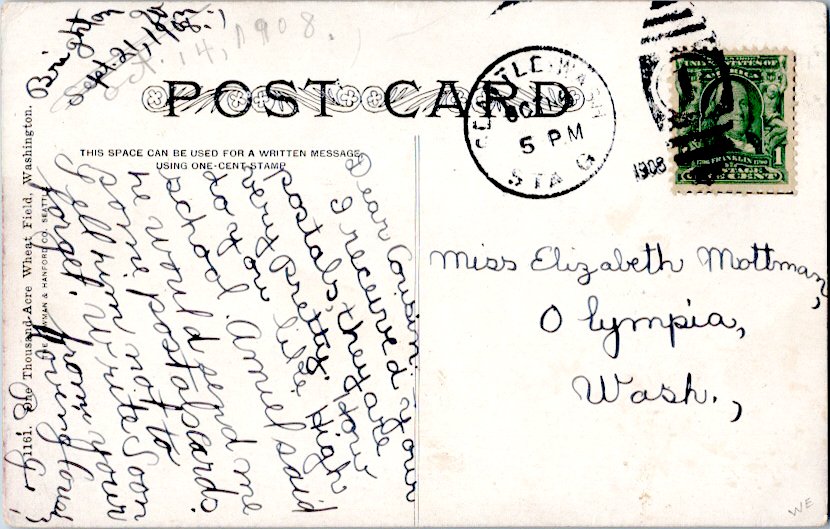 Brighton
Sept. 21, 1908.,
Oct. 14, 1908.
POST CARD
THIS SPACE CAN BE USED FOR A WRITTEN MESSAGE
USING ONE-CENT STAMP
Dear Cousin:
I received your
postals, they are
very pretty. How
do you like High
school. Amiel said
he would send me
some postalcards.
Tell him not to
forget. Write Soon
from your
loving Cous
1161. One Thousand-Acre Wheat Field, Washington.
MAN & HANFORD CO. SEATTLE
SEATTLE, WASH
OCT 14
5 PM
STA G
1908
UNITED STATES OF
AMERICA
FRANKLIN
POSTAGE
ONE CENT
1
Miss Elizabeth Mottman,
Olympia,
Wash.,
WE